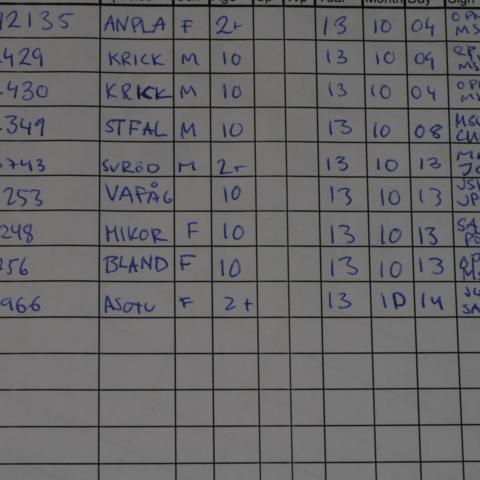 Year Month Day Sign
92135 ANPLA F 2+ 13 10 04
429 KRICK M 10 13 10 09
430 KRICK M 10 13 10 04
349 STFAL M 10 13 10 08
743 SVRÖD M 2+ 13 10 13
253 VAFÅG 10 13 10 13
248 MIKOR F 10 13 10 13
256 BLAND F 10 13 10 13
966 ASOTU F 2+ 13 10 14